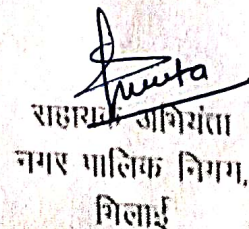 सहायक अभियंता
नगर पालिक निगम,
भिलाई